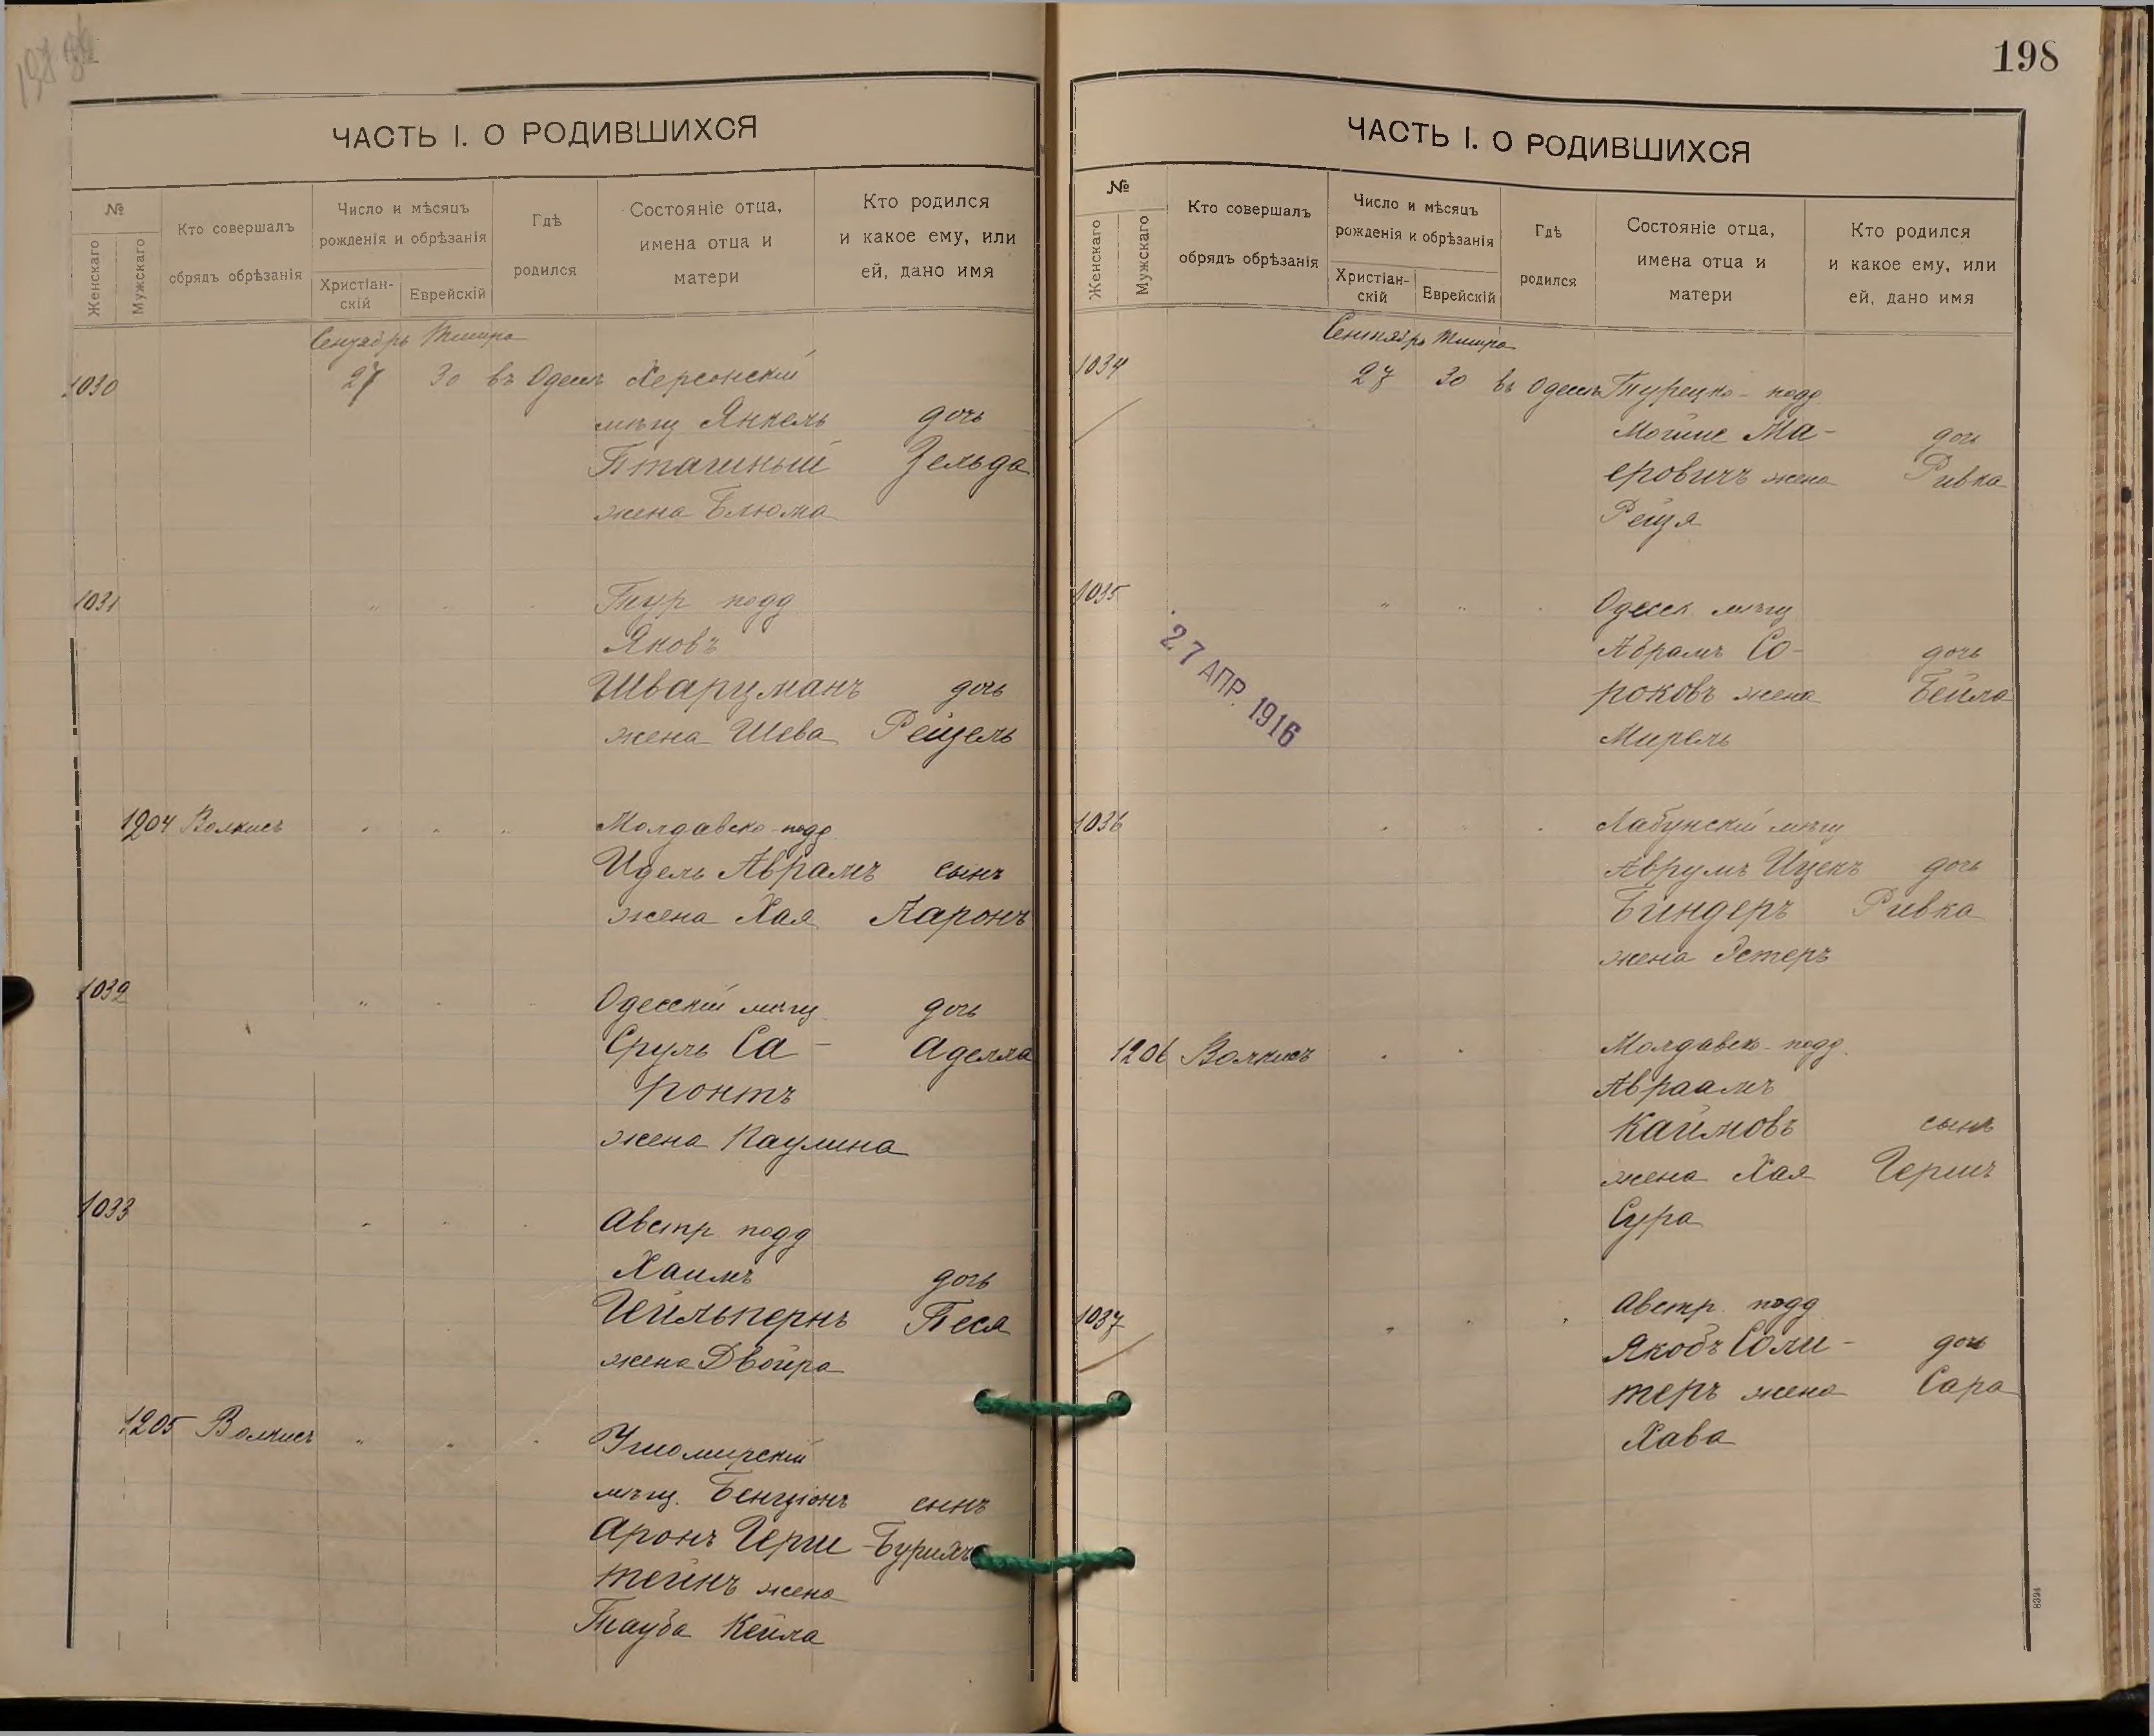 198
ЧАСТЬ I. О РОДИВШИХСЯ
№
Женскаго
Мужскаго
Кто совершалъ
обрядъ обрѣзанія
Число и мѣсяцъ
рожденія и обрѣзанія
Христіан-
скій
Еврейскій
Гдѣ
родился
Состояніе отца,
имена отца и
матери
Кто родился
и какое ему, или
ей, дано имя
Сентябрь Тишра
1030 27 30 въ Одессѣ Херсонскій
мѣщ Янкель дочь
Пташный Зельда
жена Блюма
1031 " " " Тур подд
Яковъ
Шварцманъ дочь
жена Шева Рейзель
1204 Волкисъ " " " Молдавско-подд
Идель Аврамъ сынъ
жена Хая Ааронъ
1032 " " Одесскій мѣщ дочь
Сруль Са- Аделла
ронтъ
жена Паулина
1033 " " " Австр подд
Хаимъ дочь
Гейльпернъ Песя
жена Двойра
1205 Волкисъ " " " Ушомирскій
мѣщ. Бенціонъ сынъ
Аронъ Герш- Бурихъ
тейнъ жена
Тауба Кейла
ЧАСТЬ I. О РОДИВШИХСЯ
№
Женскаго
Мужскаго
Кто совершалъ
обрядъ обрѣзанія
Число и мѣсяцъ
рожденія и обрѣзанія
Христіан-
скій
Еврейскій
Гдѣ
родился
Состояніе отца,
имена отца и
матери
Кто родился
и какое ему, или
ей, дано имя
Сентябрь Тишра
1034 27 30 въ Одессѣ Турецко-подд
Мошше Ма-
еровичъ жена дочь
Рейзя Ривка
1035 " " " Одесск мѣщ
Абрамъ Со- дочь
роковъ жена Бейла
Мирель
27 АПР. 1916
1036 " " " Лабунскій мѣщ
Аврумъ Ицекъ дочь
Биндеръ Ривка
жена Эстеръ
1206 Волкисъ " " Молдавско-подд.
Авраамъ
Каймовъ сынъ
жена Хая Гершъ
Сура
1037 " " " Австр. подд
Якобъ Соли- дочь
теръ жена Сара
Хава
8394